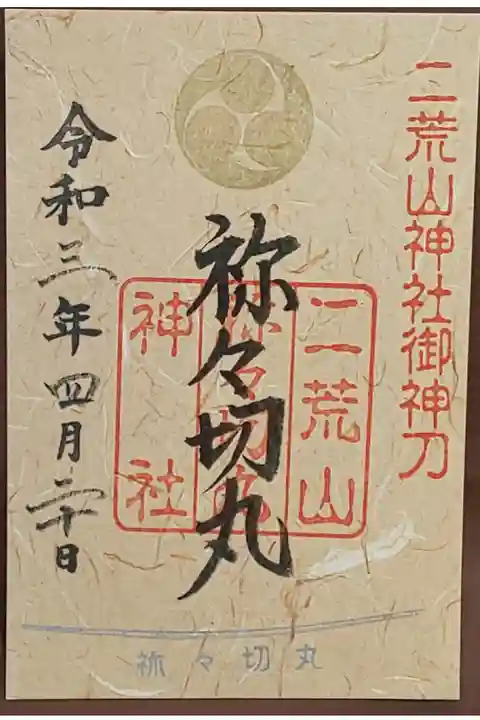 二荒山神社御神刀
祢々切丸
二荒山
神社
令和三年四月二十日
祢々切丸